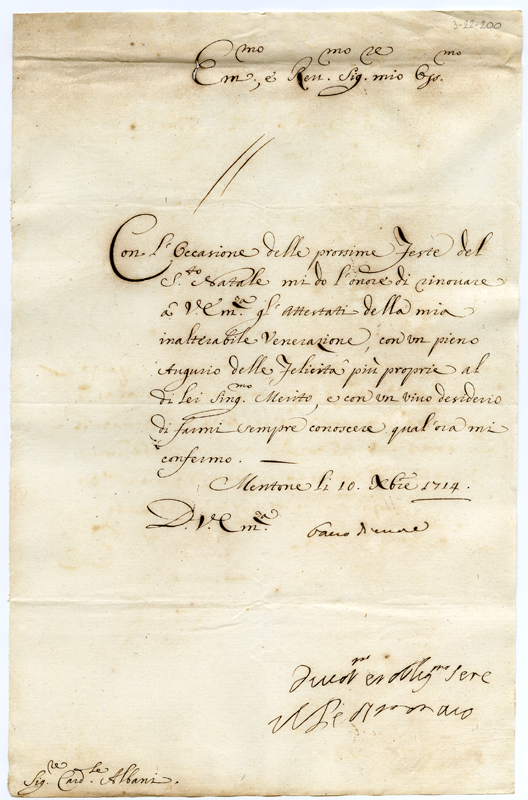 3-22-200
Em.mo, e Rev.mo Sig.re mio Oss.mo
Con l'Occasione delle prossime Feste del
S.to Natale mi do l'onore di rinovare
a V.Em.za gl'Attestati della mia
inalterabile Venerazione, con un pieno
Augurio delle Felicità più proprie al
di lei Sing.mo Merito, e con un vivo desiderio
di farmi sempre conoscere qual'ora mi
confermo.
Mentone li 10. Xbre 1714.
D. V. Em.za
bacio
devot.mo et obblig.mo Ser.e
Il P.e di Monaco
Sig.re Card.le Albani.